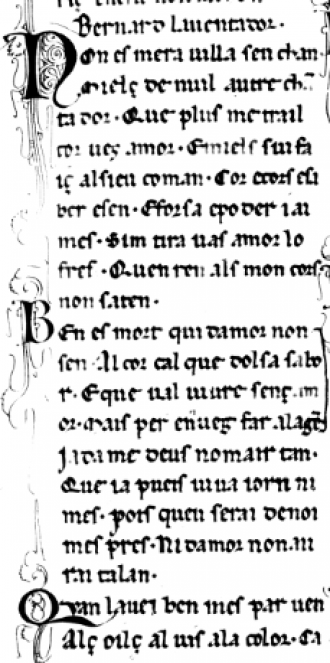 Bernard Luientador.
Non es mera uilla sen chan
mielç de nuil autre cha
tador. Que plus me trail
cor ueç amor. Emiels sui fa
iç al sieu coman. Cor ecors esa
ber esen. Eforsa epoder iai
mes. Sim tira uas amor lo
fres. Quen ren als mon cors
non saten.
Ben es mort qui damor non
sen. Al cor cal que dolsa sabo
r. Eque ual uiure senç am
or. Mais per enueg far alagēt
Ja dame deus nomair tan.
Que ia pueis uiua iorn ni
mes. pois queu serai denoi
mes pres. Ni damor non ai
rai talan.
Qvan lauei ben mes par uen
Alç oilç al uis ala color. Ca